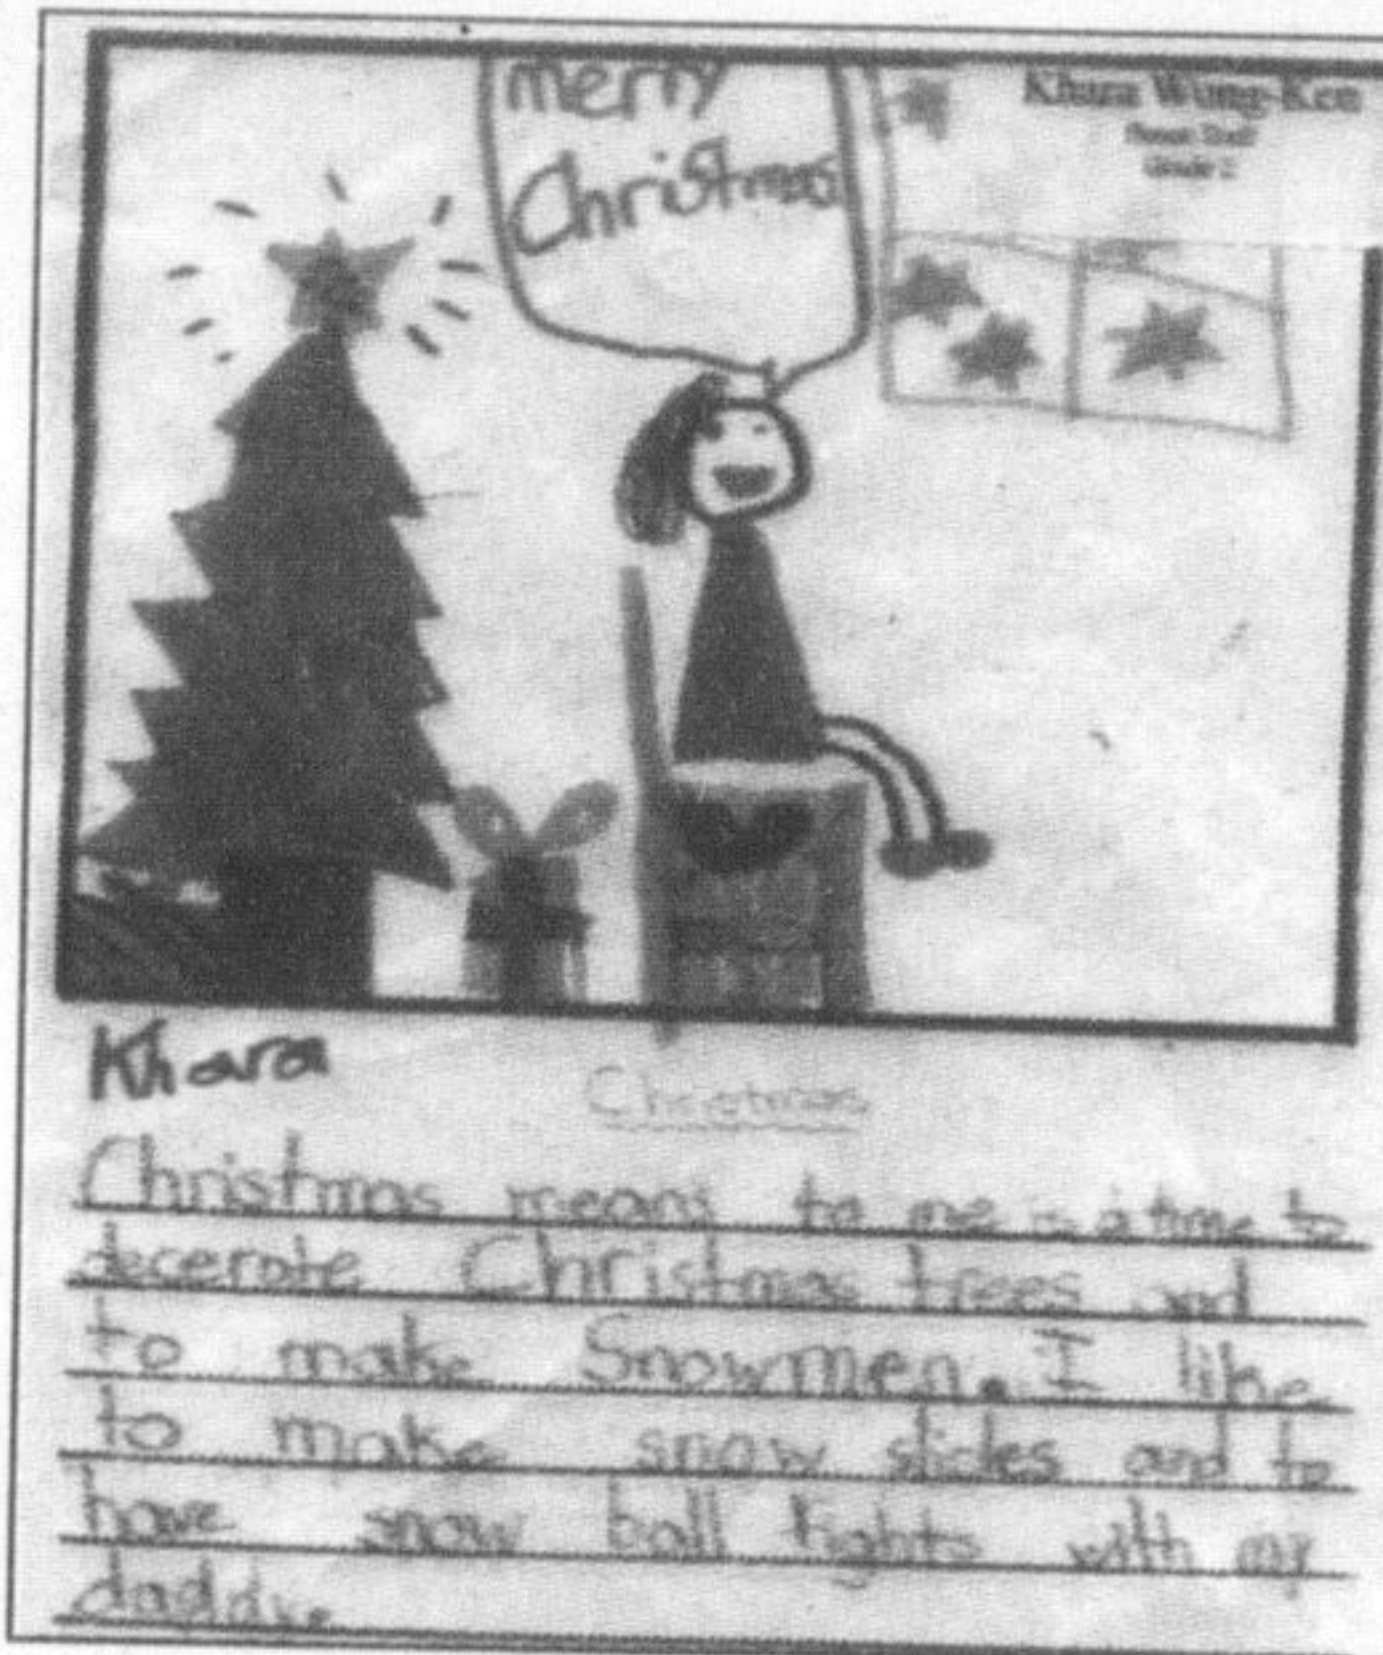 merry
Christmas
Khara Wong-Ken
Grade 2
Khara
Christmas
Christmas means to me is a time to
decerate Christmas trees and
to make Snowmen. I like
to make snow slides and to
have snow ball fights with my
daddy.